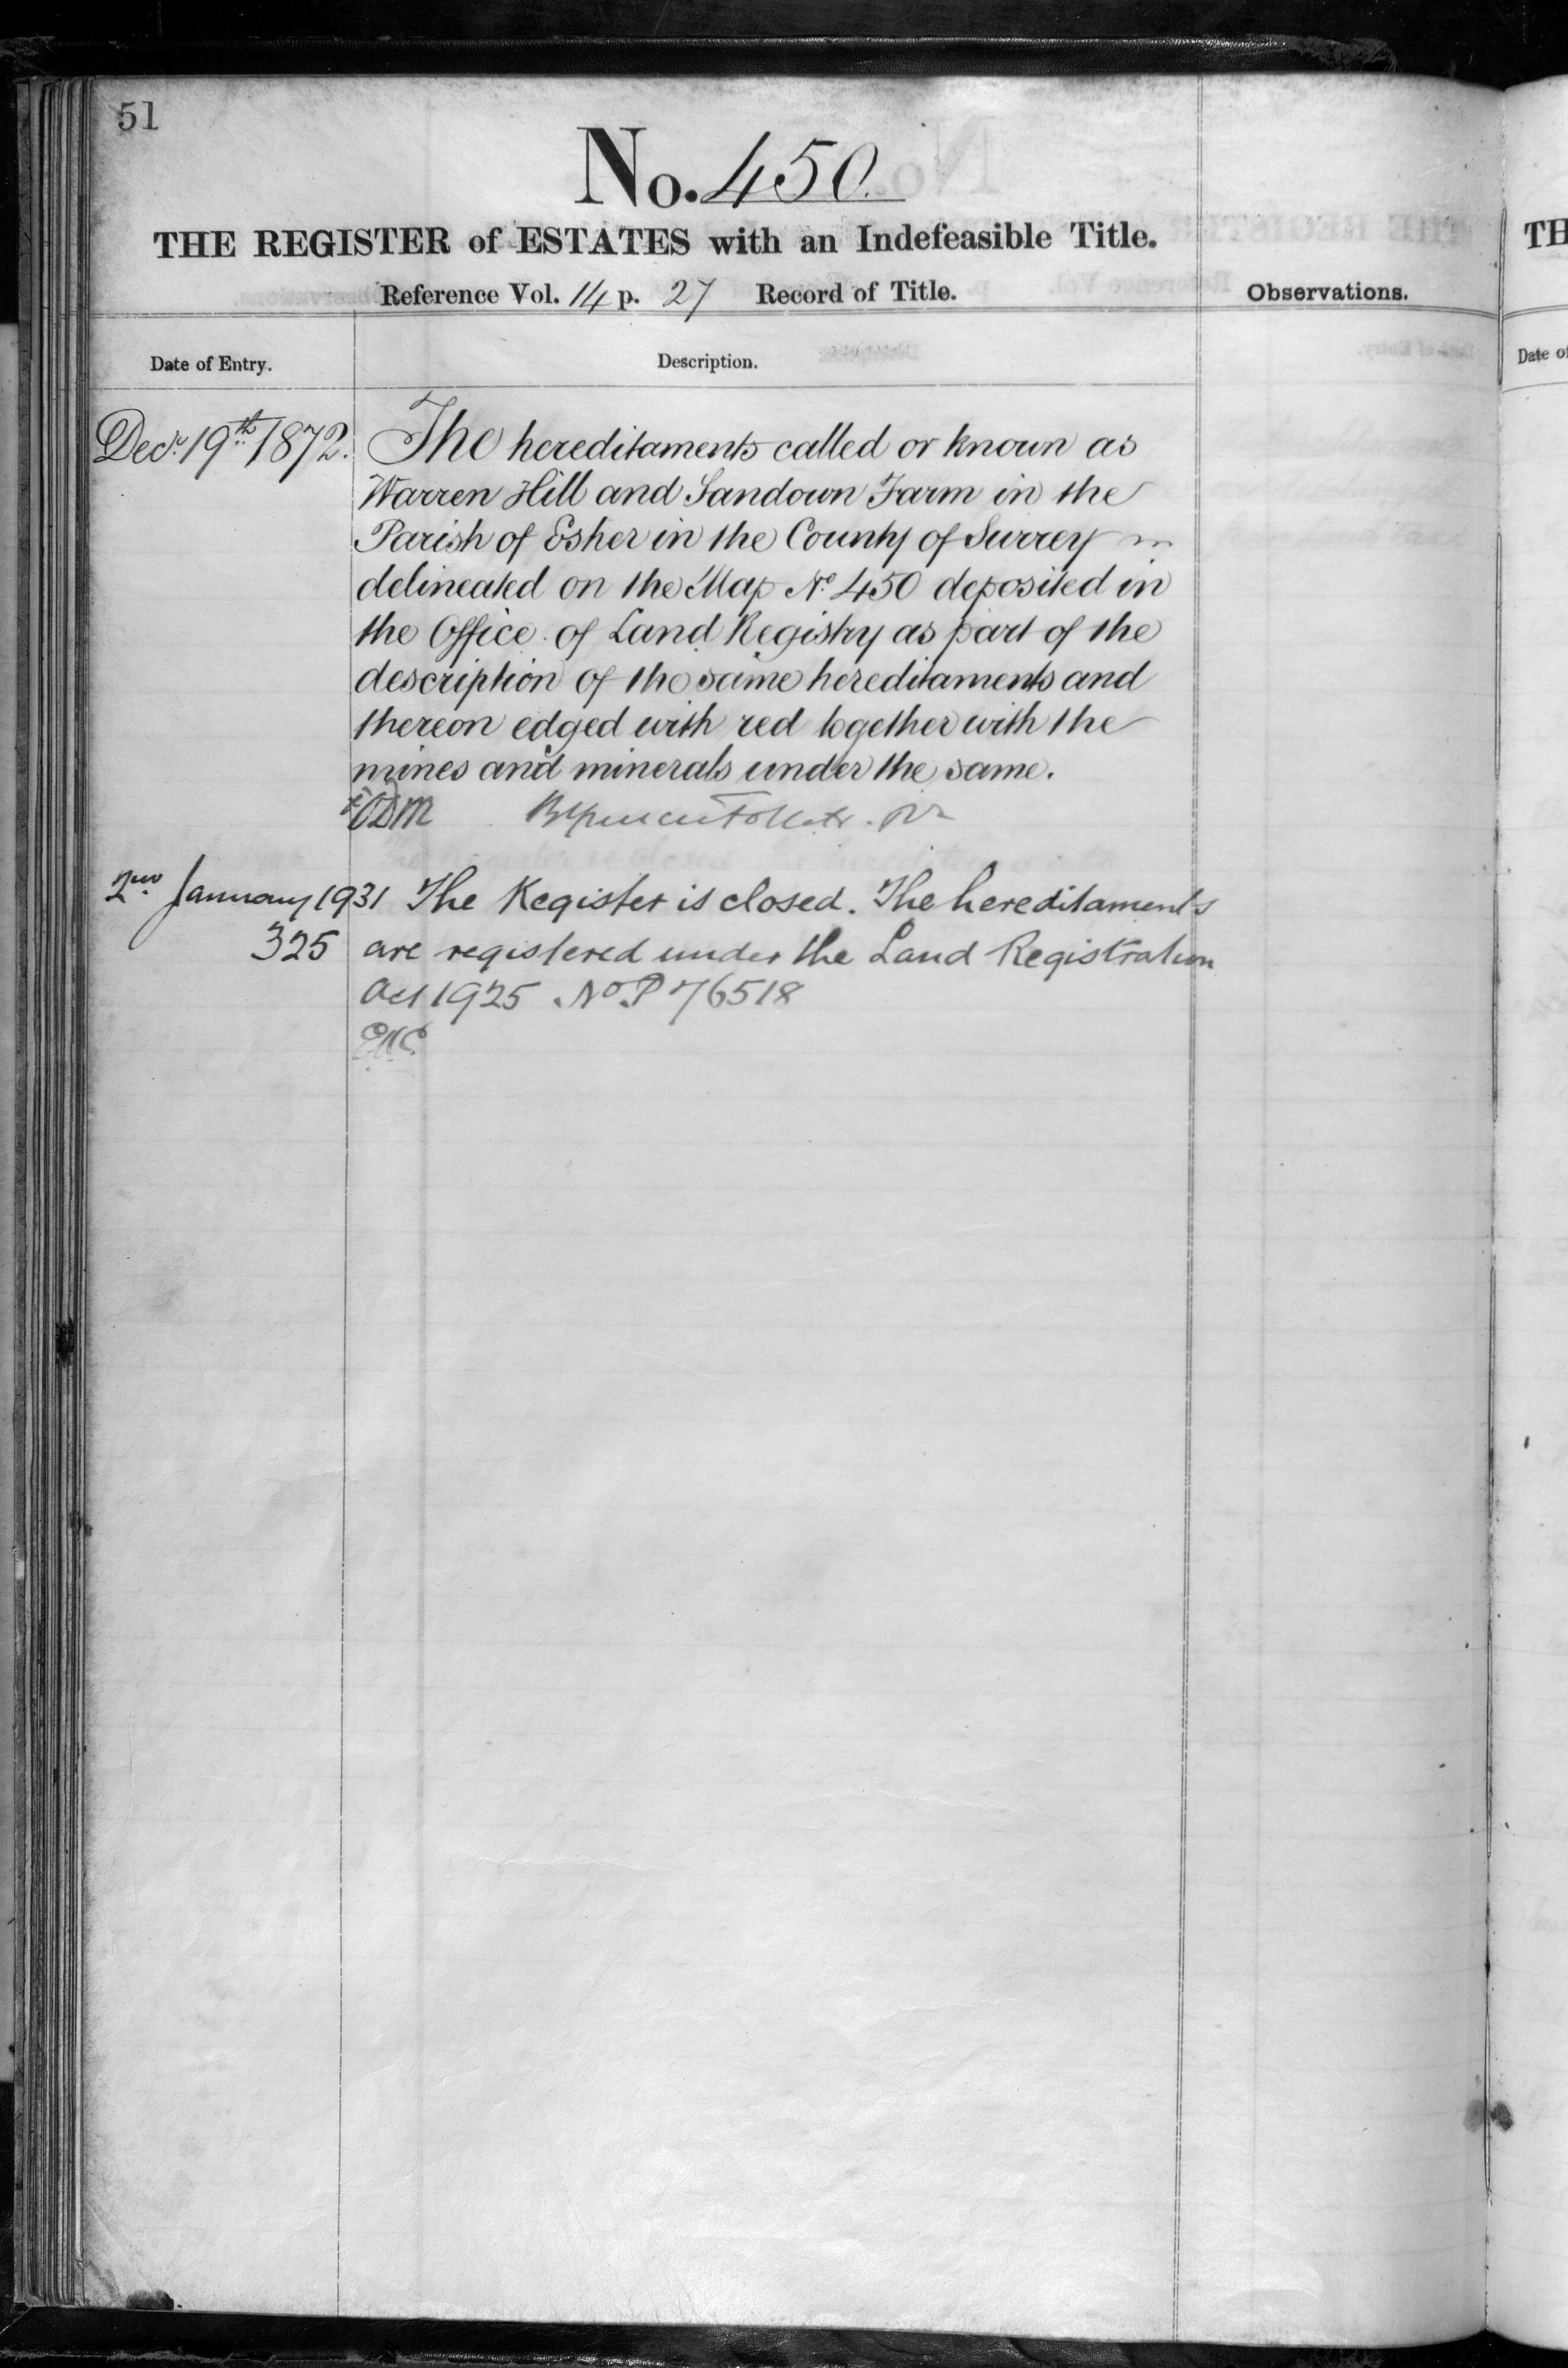 51
No. 450.
THE REGISTER of ESTATES with an Indefeasible Title.
Reference Vol. 14 p. 27 Record of Title.
Observations.
Date of Entry.
Description.
Decr. 19th 1872. The hereditaments called or known as
Warren Hill and Sandown Farm in the
Parish of Esher in the County of Surrey
delineated on the Map No. 450 deposited in
the Office of Land Registry as part of the
description of the same hereditaments and
thereon edged with red together with the
mines and minerals under the same.
2nd January 1931 The Register is closed. The hereditaments
325 are registered under the Land Registration
Act 1925. No. P 76518
TH
Date of